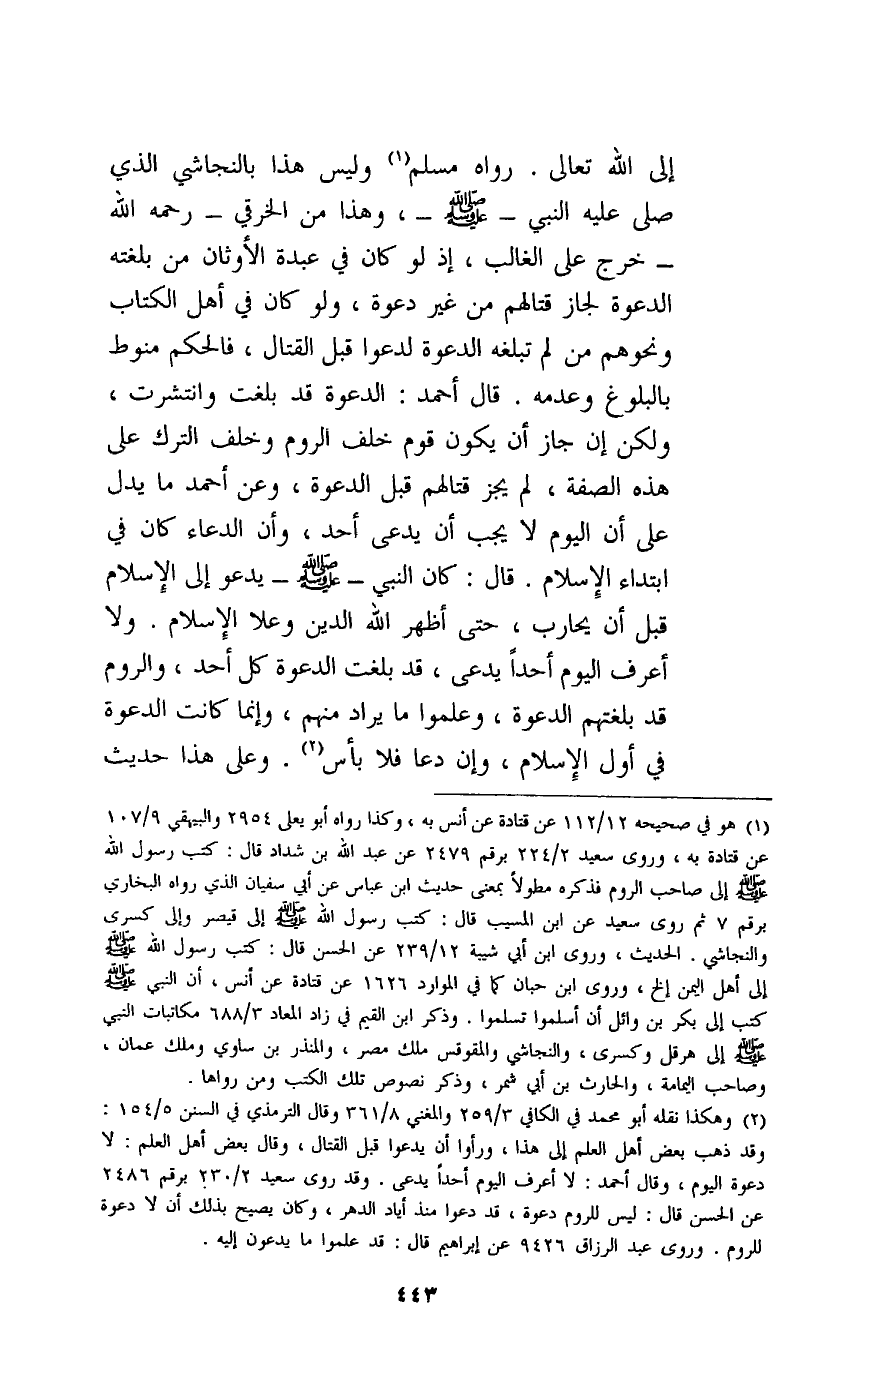 إلى الله تعالى . رواه مسلم(١) وليس هذا بالنجاشي الذي
صلى عليه النبي – ﷺ – ، وهذا من الخرقي – رحمه الله
– خرج على الغالب ، إذ لو كان في عبدة الأوثان من بلغته
الدعوة لجاز قتالهم من غير دعوة ، ولو كان في أهل الكتاب
ونحوهم من لم تبلغه الدعوة لدعوا قبل القتال ، فالحكم منوط
بالبلوغ وعدمه . قال أحمد : الدعوة قد بلغت وانتشرت ،
ولكن إن جاز أن يكون قوم خلف الروم وخلف الترك على
هذه الصفة ، لم يجز قتالهم قبل الدعوة ، وعن أحمد ما يدل
على أن اليوم لا يجب أن يدعى أحد ، وأن الدعاء كان في
ابتداء الإسلام . قال : كان النبي – ﷺ – يدعو إلى الإسلام
قبل أن يحارب ، حتى أظهر الله الدين وعلا الإسلام . ولا
أعرف اليوم أحداً يدعى ، قد بلغت الدعوة كل أحد ، والروم
قد بلغتهم الدعوة ، وعلموا ما يراد منهم ، وإنما كانت الدعوة
في أول الإسلام ، وإن دعا فلا بأس(٢) . وعلى هذا حديث
(١) هو في صحيحه ١١٢/١٢ عن قتادة عن أنس به ، وكذا رواه أبو يعلى ٢٩٥٤ والبيهقي ١٠٧/٩
عن قتادة به ، وروى سعيد ٢٢٤/٢ برقم ٢٤٧٩ عن عبد الله بن شداد قال : كتب رسول الله
ﷺ إلى صاحب الروم فذكره مطولاً بمعنى حديث ابن عباس عن أبي سفيان الذي رواه البخاري
برقم ٧ ثم روى سعيد عن ابن المسيب قال : كتب رسول الله ﷺ إلى قيصر وإلى كسرى
والنجاشي . الحديث ، وروى ابن أبي شيبة ٢٣٩/١٢ عن الحسن قال : كتب رسول الله ﷺ
إلى أهل اليمن إلخ ، وروى ابن حبان كما في الموارد ١٦٢٦ عن قتادة عن أنس ، أن النبي ﷺ
كتب إلى بكر بن وائل أن أسلموا تسلموا . وذكر ابن القيم في زاد المعاد ٦٨٨/٣ مكاتبات النبي
ﷺ إلى هرقل وكسرى ، والنجاشي والمقوقس ملك مصر ، والمنذر بن ساوي وملك عمان ،
وصاحب اليمامة ، والحارث بن أبي شمر ، وذكر نصوص تلك الكتب ومن رواها .
(٢) وهكذا نقله أبو محمد في الكافي ٢٥٩/٣ والمغني ٣٦١/٨ وقال الترمذي في السنن ١٥٤/٥ :
وقد ذهب بعض أهل العلم إلى هذا ، ورأوا أن يدعوا قبل القتال ، وقال بعض أهل العلم : لا
دعوة اليوم ، وقال أحمد : لا أعرف اليوم أحداً يدعى . وقد روى سعيد ٢٣٠/٢ برقم ٢٤٨٦
عن الحسن قال : ليس للروم دعوة ، قد دعوا منذ أياد الدهر ، وكان يصيح بذلك أن لا دعوة
للروم . وروى عبد الرزاق ٩٤٢٦ عن إبراهيم قال : قد علموا ما يدعون إليه .
٤٤٣